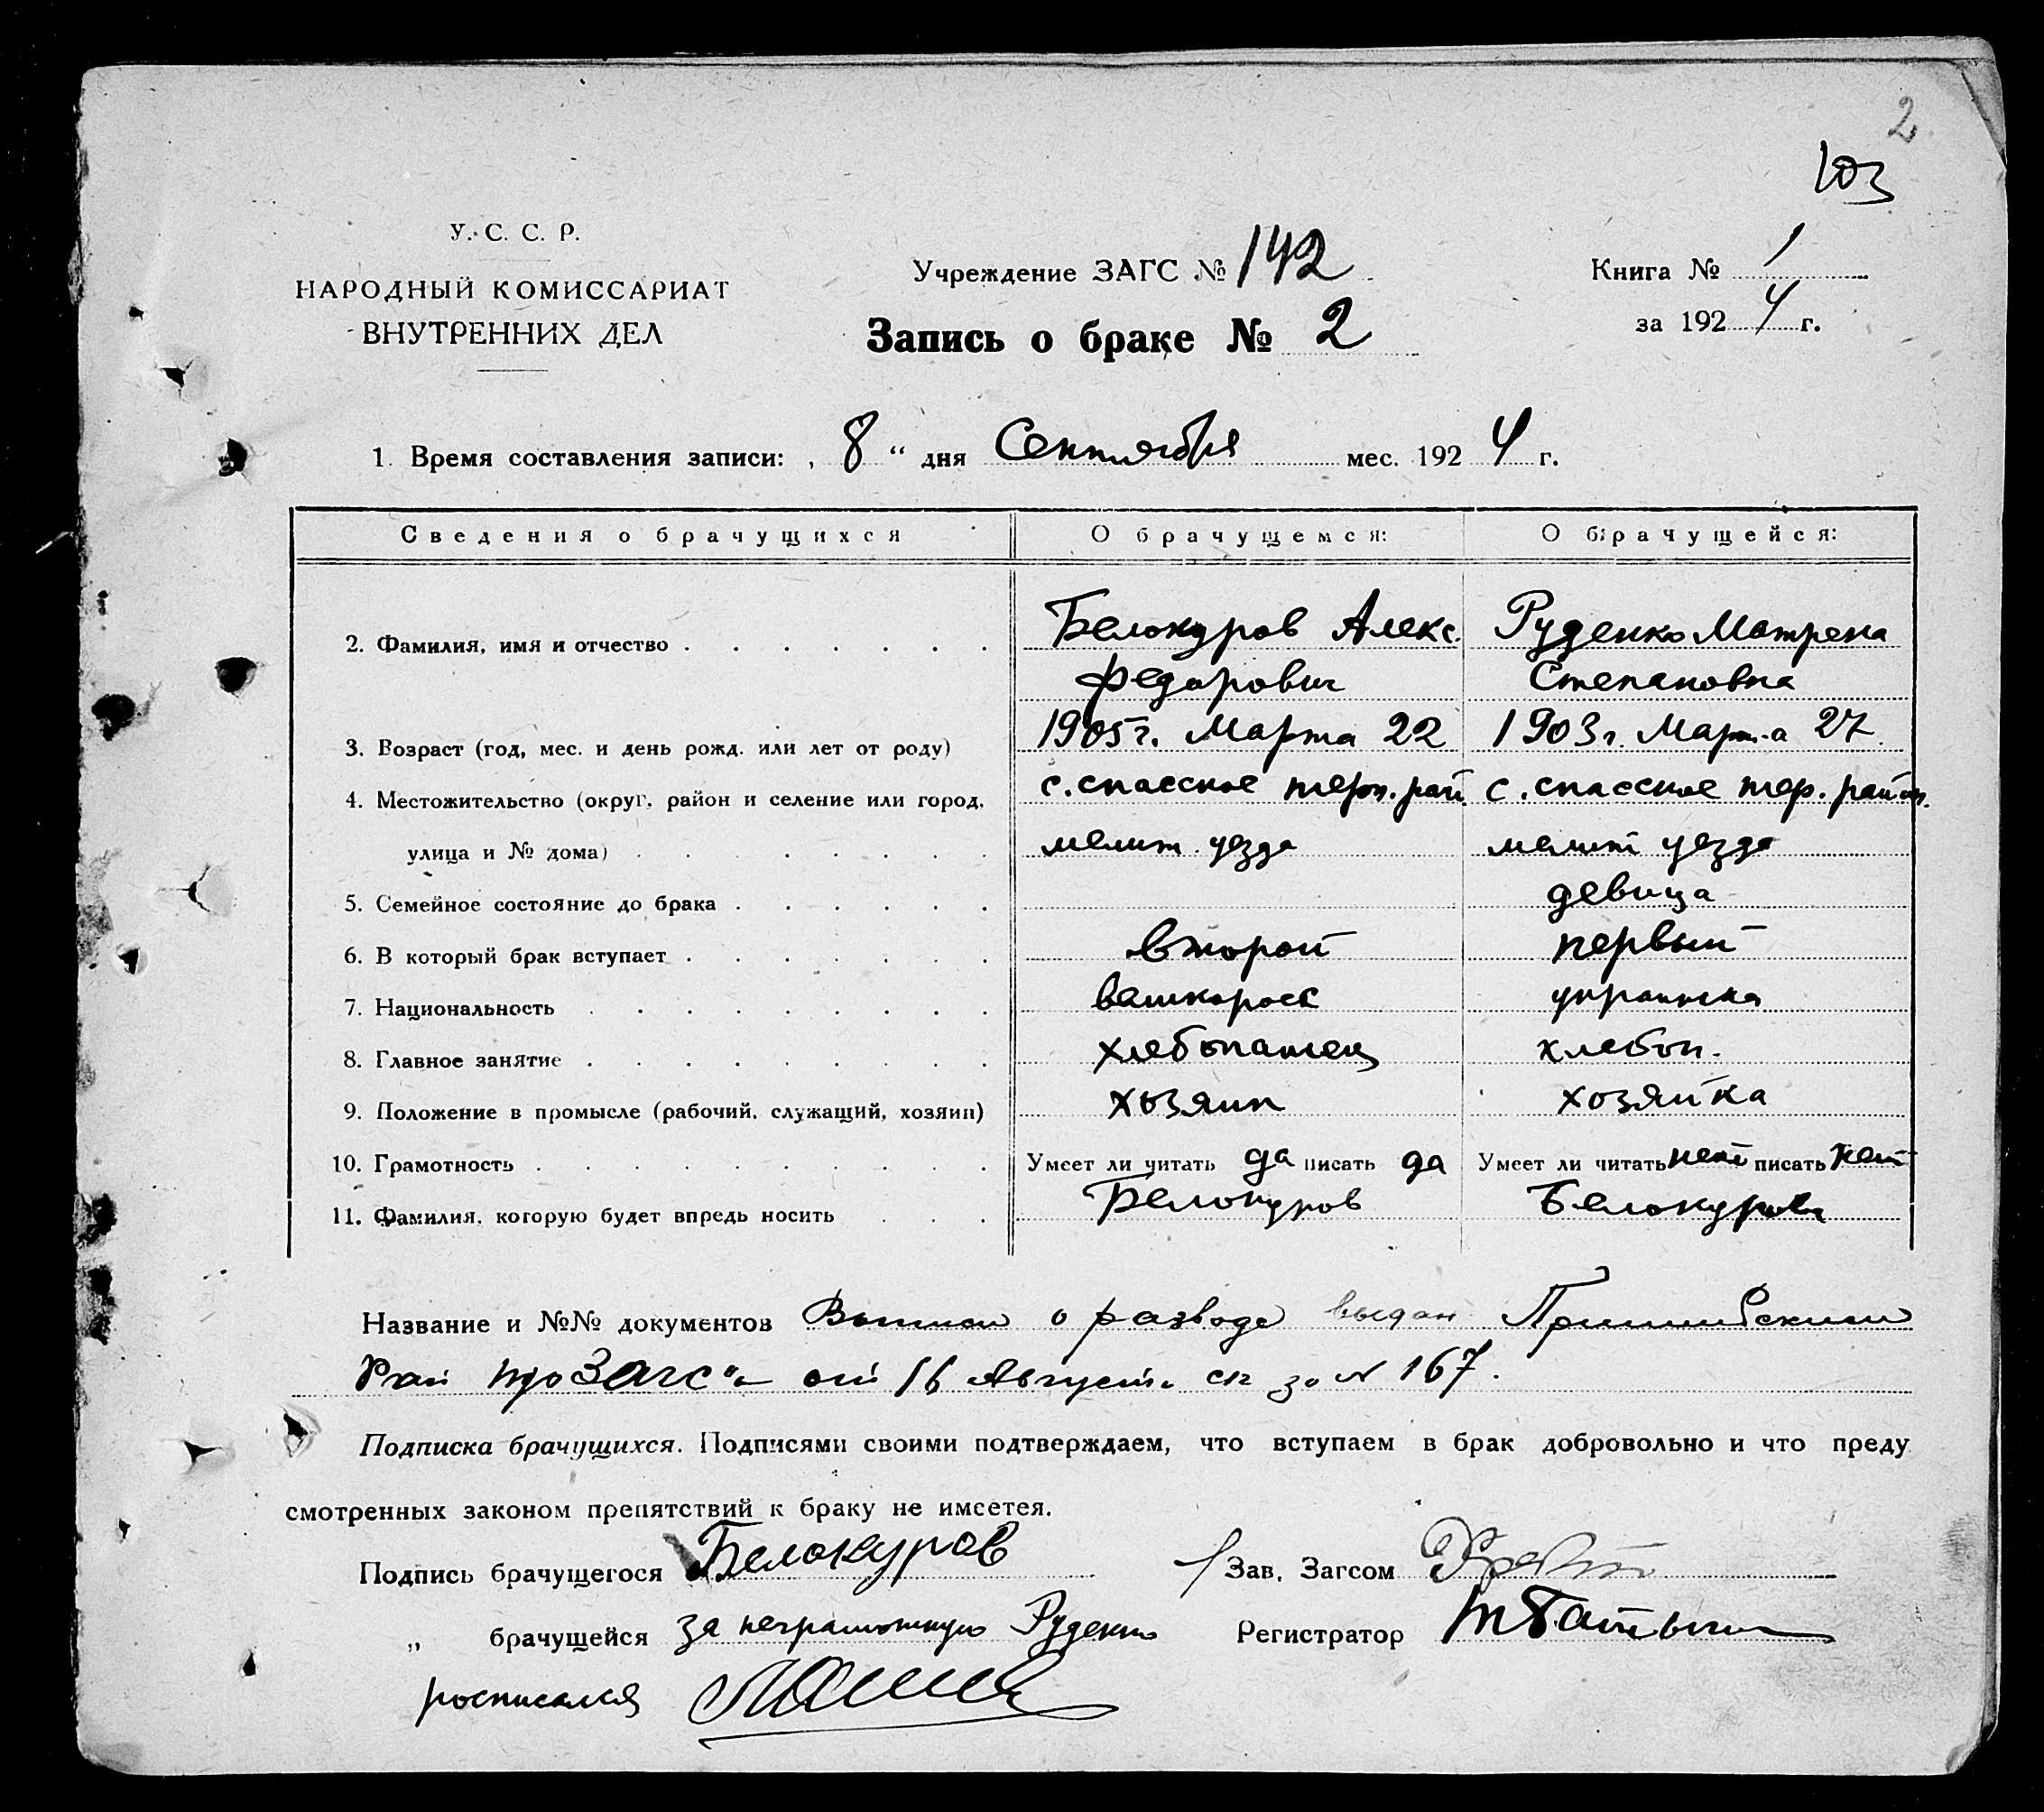 2
103
У. С. С. Р.
НАРОДНЫЙ КОМИССАРИАТ
ВНУТРЕННИХ ДЕЛ
Учреждение ЗАГС № 142
Запись о браке № 2
Книга № 1
за 1924 г.
1. Время составления записи: „ 8 “ дня Сентября мес. 1924 г.
Сведения о брачущихся О брачущемся: О брачущейся:
2. Фамилия, имя и отчество Белокуров Алекс. Руденко Матрена
Федорович Степановна
3. Возраст (год, мес. и день рожд. или лет от роду) 1905 г. Марта 22 1903 г. Марта 27
4. Местожительство (округ, район и селение или город, с. спасское терп. рай. с. спасское тер. район.
улица и № дома) мелит. уезда мелит уезда
5. Семейное состояние до брака девица
6. В который брак вступает второй первый
7. Национальность великоросс украинка
8. Главное занятие хлебопашец хлебоп.
9. Положение в промысле (рабочий, служащий, хозяин) хозяин хозяйка
10. Грамотность Умеет ли читать да писать да Умеет ли читать нет писать нет
11. Фамилия, которую будет впредь носить Белокуров Белокурова
Название и №№ документов о разводе выдан Пришибским
Рай от 16 Августа за № 167.
Подписка брачущихся. Подписями своими подтверждаем, что вступаем в брак добровольно и что преду
смотренных законом препятствий к браку не имеется.
Подпись брачущегося Белокуров Зав. Загсом
„ брачущейся за неграмотную Руденко Регистратор
росписался